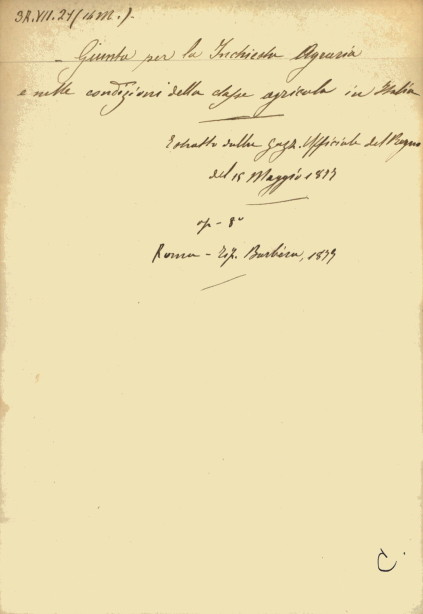 3R.VII.27 (16 M.).
- Giunta per la Inchiesta Agraria
e nelle condizioni della classe agricola in Italia
Estratto dalla Gazz. Ufficiale del Regno
del 15 Maggio 1877
op - 8°
Roma - Tip. Barbèra, 1879
C.